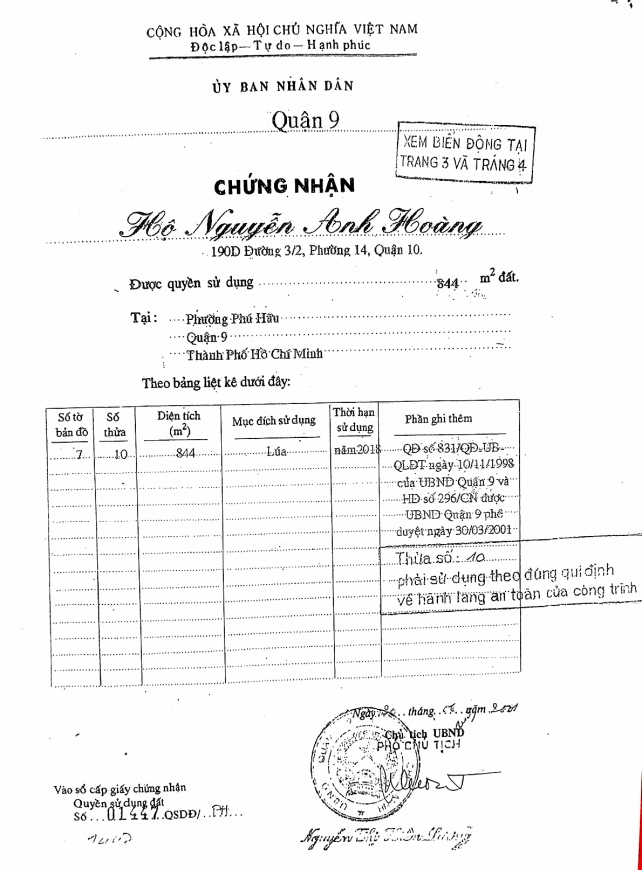 CỘNG HÒA XÃ HỘI CHỦ NGHĨA VIỆT NAM
Độc lập — Tự do — Hạnh phúc
ỦY BAN NHÂN DÂN
Quận 9
XEM BIẾN ĐỘNG TẠI
TRANG 3 VÀ TRANG 4
CHỨNG NHẬN
Hộ Nguyễn Anh Hoàng
190D Đường 3/2, Phường 14, Quận 10.
Được quyền sử dụng 844 m² đất.
Tại : Phường Phú Hữu
Quận 9
Thành Phố Hồ Chí Minh
Theo bảng liệt kê dưới đây:
Số tờ bản đồ Số thửa Diện tích (m²) Mục đích sử dụng Thời hạn sử dụng Phần ghi thêm
7 10 844 Lúa năm 2018 QĐ số 831/QĐ-UB-
QLĐT ngày 10/11/1998
của UBND Quận 9 và
HĐ số 296/CN được
UBND Quận 9 phê
duyệt ngày 30/03/2001
Thửa số : 10
phải sử dụng theo đúng qui định
về hành lang an toàn của công trình
Ngày tháng năm 2001
Chủ tịch UBND
PHÓ CHỦ TỊCH
Vào sổ cấp giấy chứng nhận
Quyền sử dụng đất
Số 01447 QSDĐ/
Nguyễn Thị